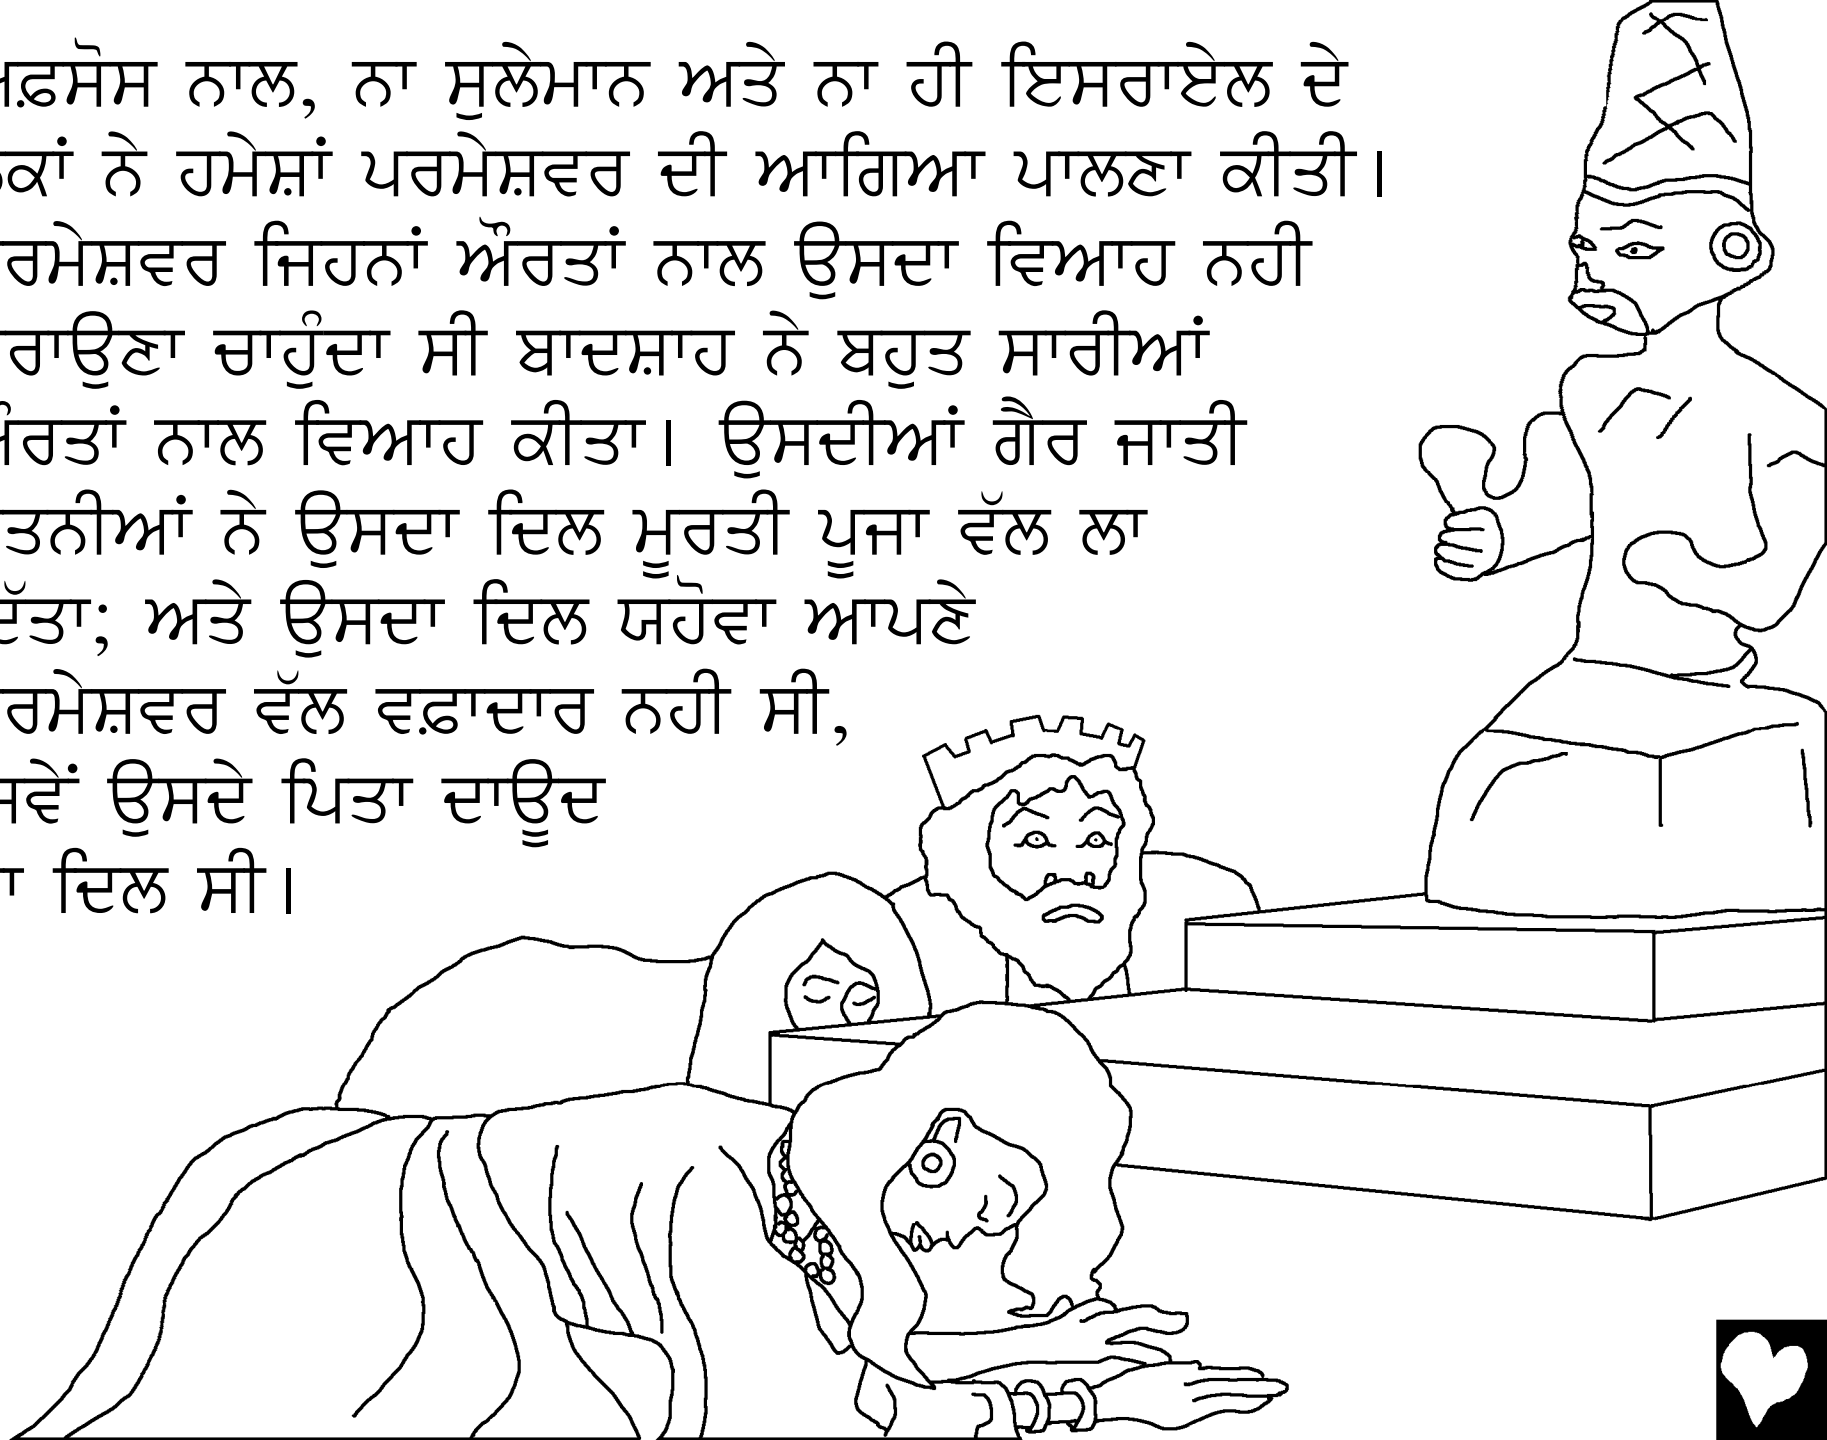 ਅਫ਼ਸੋਸ ਨਾਲ, ਨਾ ਸੁਲੇਮਾਨ ਅਤੇ ਨਾ ਹੀ ਇਸਰਾਏਲ ਦੇ
ਲੋਕਾਂ ਨੇ ਹਮੇਸ਼ਾਂ ਪਰਮੇਸ਼ਵਰ ਦੀ ਆਗਿਆ ਪਾਲਣਾ ਕੀਤੀ।
ਪਰਮੇਸ਼ਵਰ ਜਿਹਨਾਂ ਔਰਤਾਂ ਨਾਲ ਉਸਦਾ ਵਿਆਹ ਨਹੀ
ਕਰਾਉਣਾ ਚਾਹੁੰਦਾ ਸੀ ਬਾਦਸ਼ਾਹ ਨੇ ਬਹੁਤ ਸਾਰੀਆਂ
ਔਰਤਾਂ ਨਾਲ ਵਿਆਹ ਕੀਤਾ। ਉਸਦੀਆਂ ਗੈਰ ਜਾਤੀ
ਪਤਨੀਆਂ ਨੇ ਉਸਦਾ ਦਿਲ ਮੂਰਤੀ ਪੂਜਾ ਵੱਲ ਲਾ
ਦਿੱਤਾ; ਅਤੇ ਉਸਦਾ ਦਿਲ ਯਹੋਵਾ ਆਪਣੇ
ਪਰਮੇਸ਼ਵਰ ਵੱਲ ਵਫ਼ਾਦਾਰ ਨਹੀ ਸੀ,
ਜਿਸਵੇਂ ਉਸਦੇ ਪਿਤਾ ਦਾਊਦ
ਦਾ ਦਿਲ ਸੀ।